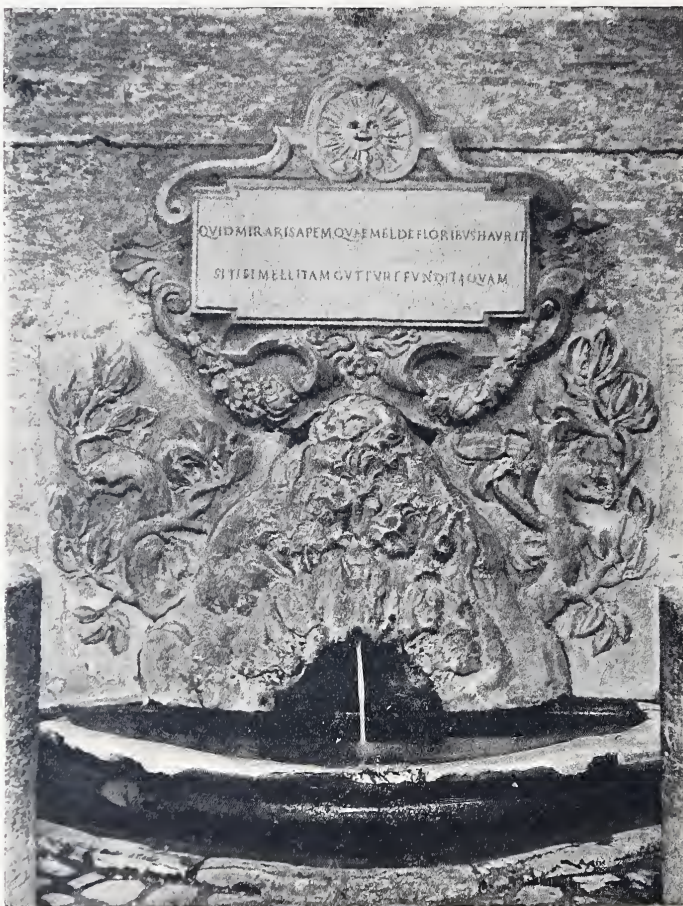 QVID MIRARIS APEM QVAE MEL DE FLORIBVS HAVRIT
SI TIBI MELLITAM GVTTVRE FVNDIT AQVAM